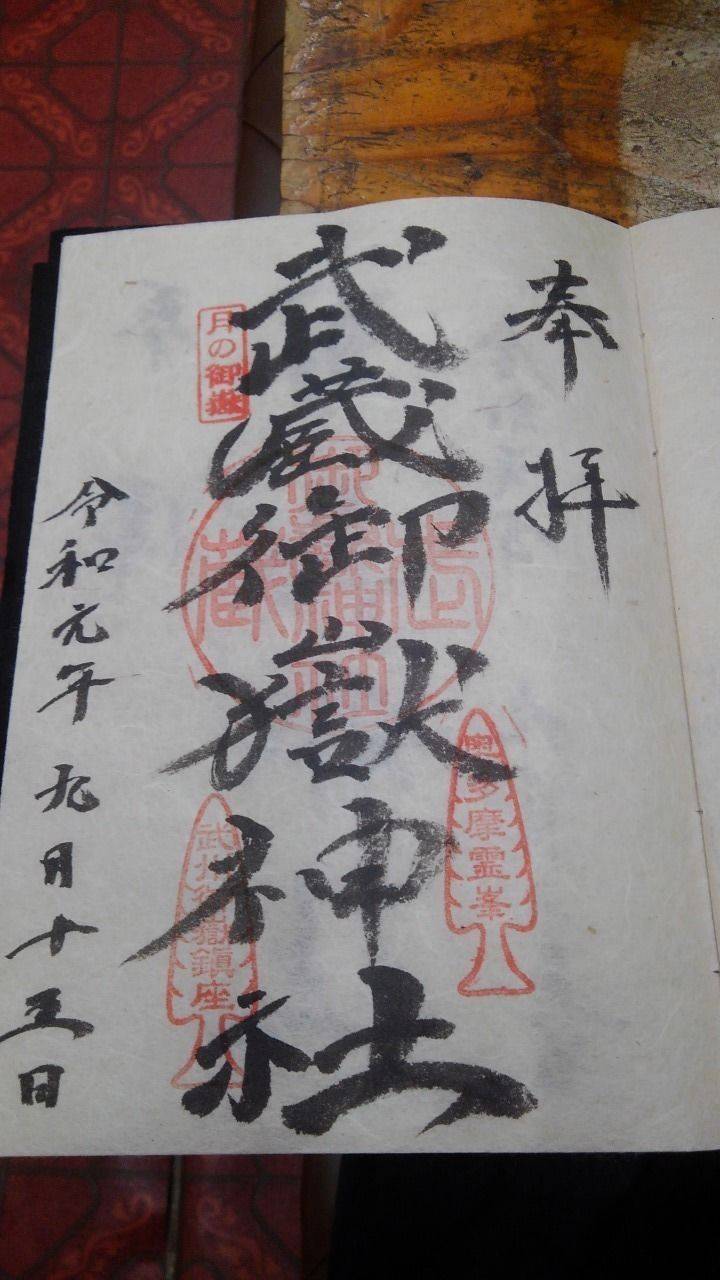 奉拝
奥多摩霊峯
武蔵御嶽神社
月の御嶽
武州御嶽鎮座
令和元年 九月十五日